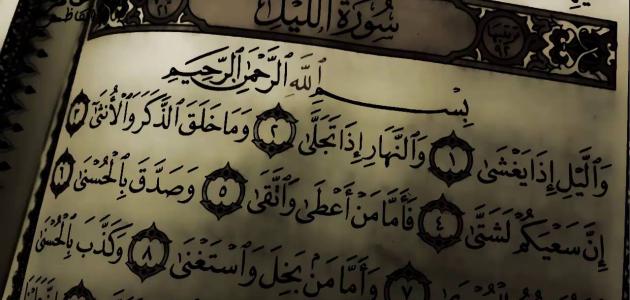 سُورَةُ اللَّيْلِ
بِسْمِ ٱللَّهِ ٱلرَّحْمَٰنِ ٱلرَّحِيمِ
وَٱلَّيْلِ إِذَا يَغْشَىٰ ١ وَٱلنَّهَارِ إِذَا تَجَلَّىٰ ٢ وَمَا خَلَقَ ٱلذَّكَرَ وَٱلْأُنثَىٰٓ ٣
إِنَّ سَعْيَكُمْ لَشَتَّىٰ ٤ فَأَمَّا مَنْ أَعْطَىٰ وَٱتَّقَىٰ ٥ وَصَدَّقَ بِٱلْحُسْنَىٰ ٦
٧ وَأَمَّا مَنۢ بَخِلَ وَٱسْتَغْنَىٰ ٨ وَكَذَّبَ بِٱلْحُسْنَىٰ